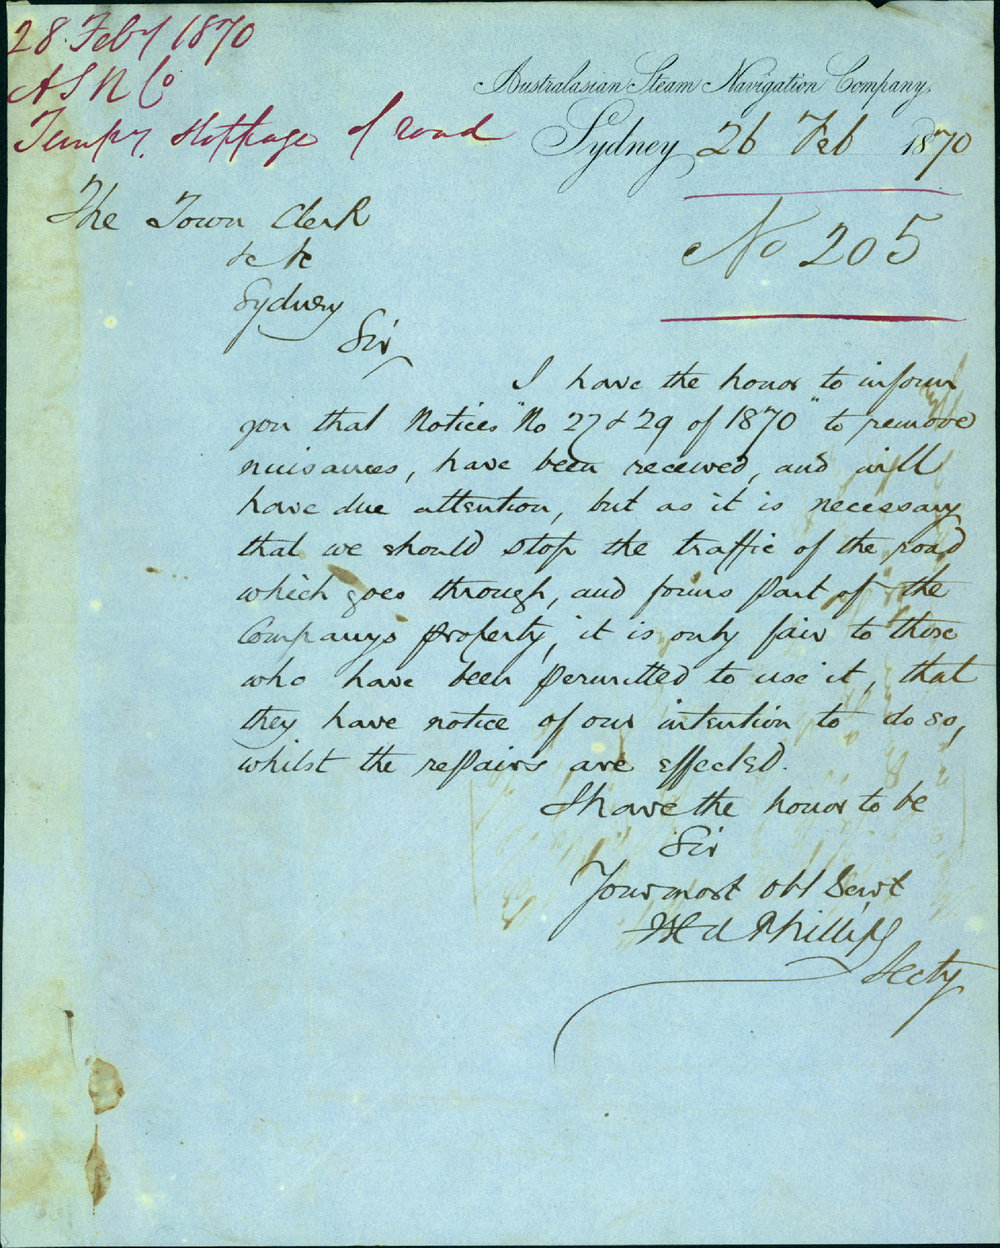 28 Feby 1870
A S N Co
Tempy. stoppage of road
Australasian Steam Navigation Company,
Sydney, 26 Feb 1870
No 205
The Town Clerk
&c &c
Sydney
Sir,
I have the honor to inform
you that Notices "No 27 & 29 of 1870" to remove
nuisances, have been received, and will
have due attention, but as it is necessary
that we should stop the traffic of the road
which goes through, and forms part of the
Companys property, it is only fair to those
who have been permitted to use it, that
they have notice of our intention to do so,
whilst the repairs are effected.
I have the honor to be
Sir
Your most obt Servt
Phillips
Secty